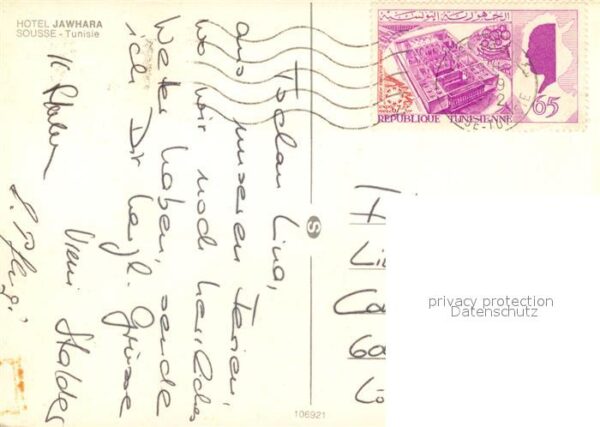 HOTEL JAWHARA
SOUSSE - Tunisie
الجمهورية التونسية
67
65
REPUBLIQUE TUNISIENNE
Lina,
aus unseren Ferien,
wo wir noch herrliches
Wetter haben, sende
ich Dir herzl. Grüsse
Vreni Stalder
S
H
Li
Ca
60
privacy protection
Datenschutz
106921